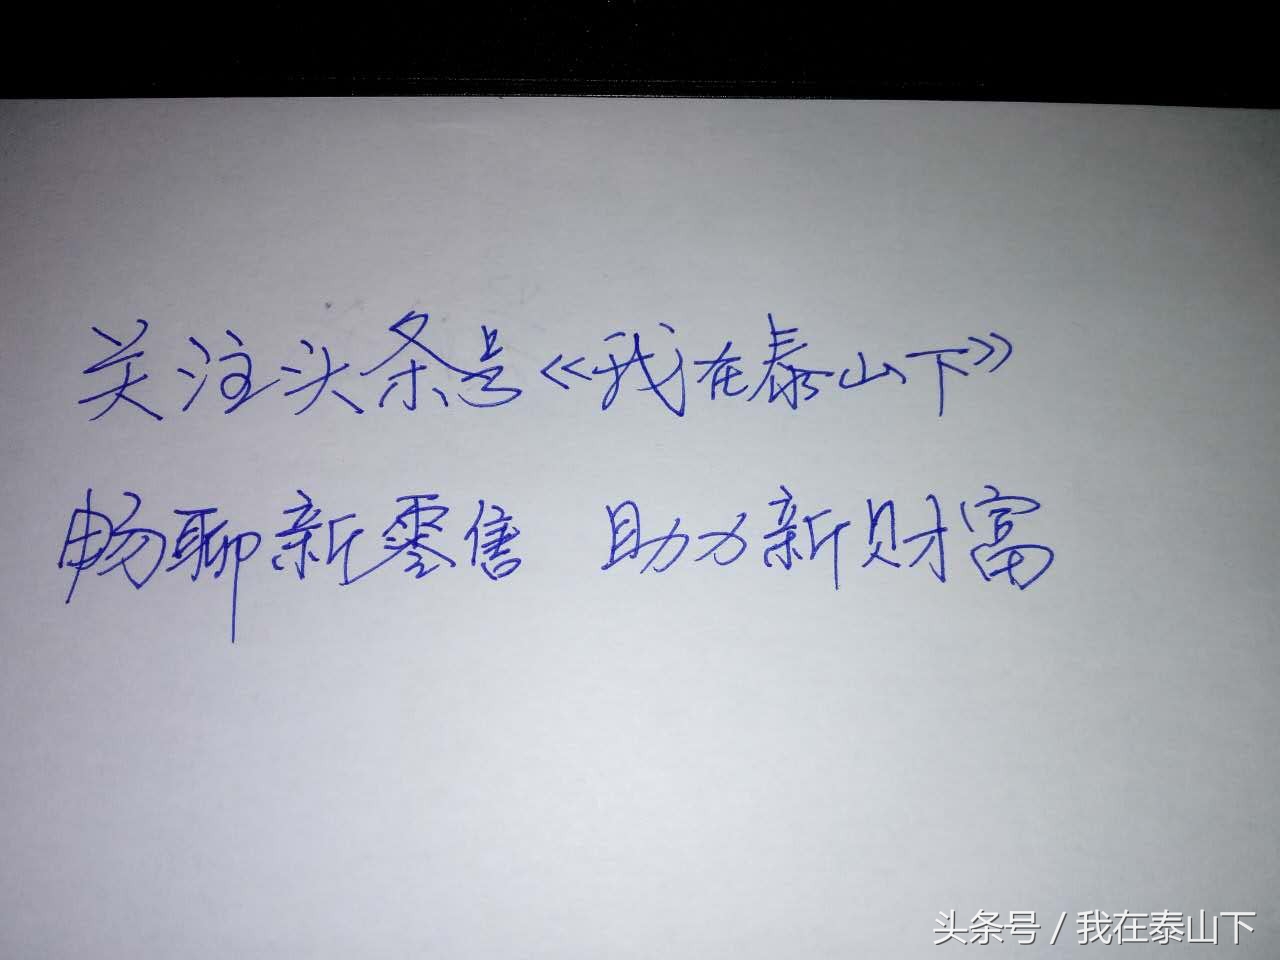 关注头条号《我在泰山下》
畅聊新零售 助力新财富
头条号 / 我在泰山下